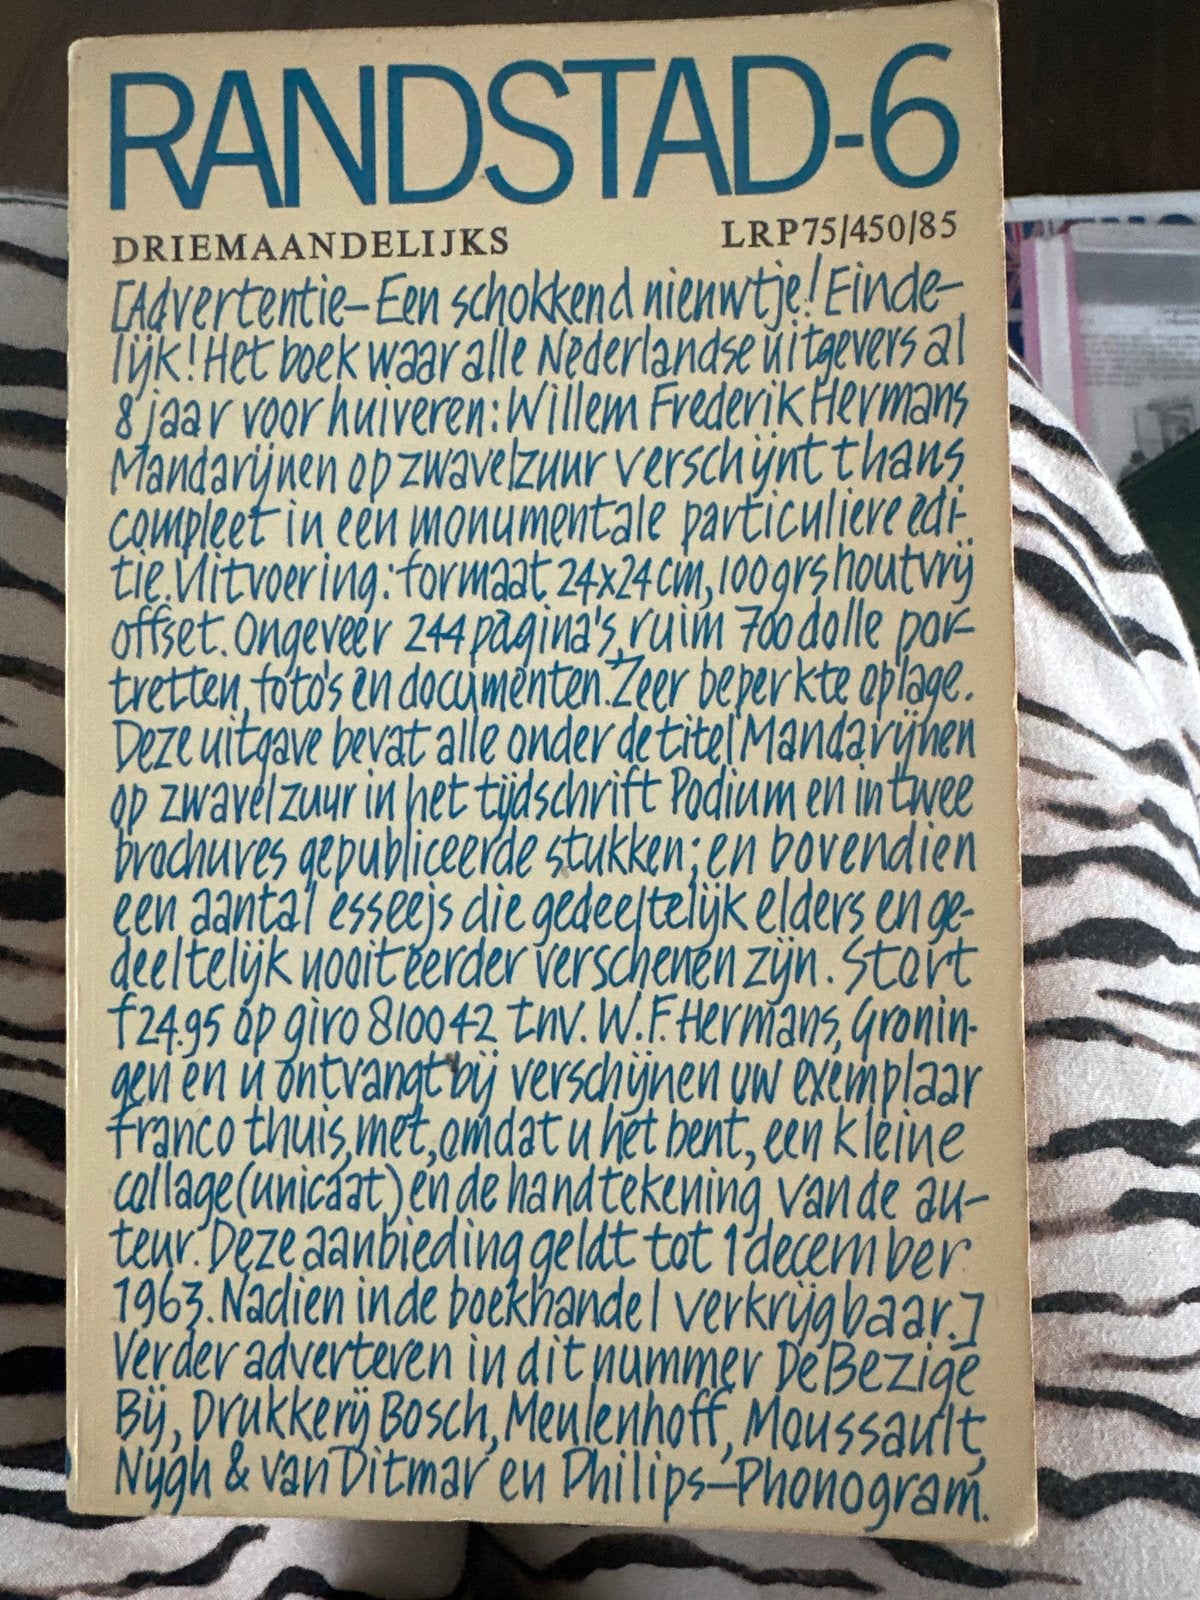 RANDSTAD-6
DRIEMAANDELIJKS LRP75/450/85
[Advertentie–Een schokkend nieuwtje! Einde-
lijk! Het boek waar alle Nederlandse uitgevers al
8 jaar voor huiveren: Willem Frederik Hermans
Mandarijnen op zwavelzuur verschijnt thans
compleet in een monumentale particuliere edi-
tie. Uitvoering: formaat 24x24cm, 100grs houtvrij
offset. Ongeveer 244 pagina's, ruim 700 dolle por-
tretten, foto's en documenten. Zeer beperkte oplage.
Deze uitgave bevat alle onder de titel Mandarijnen
op zwavelzuur in het tijdschrift Podium en in twee
brochures gepubliceerde stukken; en bovendien
een aantal esseejs die gedeeltelijk elders en ge-
deeltelijk nooit eerder verschenen zijn. Stort
f24.95 op giro 810042 tnv. W.F. Hermans, Gronin-
gen en u ontvangt bij verschijnen uw exemplaar
franco thuis, met, omdat u het bent, een kleine
collage (unicaat) en de handtekening van de au-
teur. Deze aanbieding geldt tot 1 december
1963. Nadien in de boekhandel verkrijgbaar.]
Verder adverteren in dit nummer De Bezige
Bij, Drukkerij Bosch, Meulenhoff, Moussault,
Nijgh & van Ditmar en Philips–Phonogram.